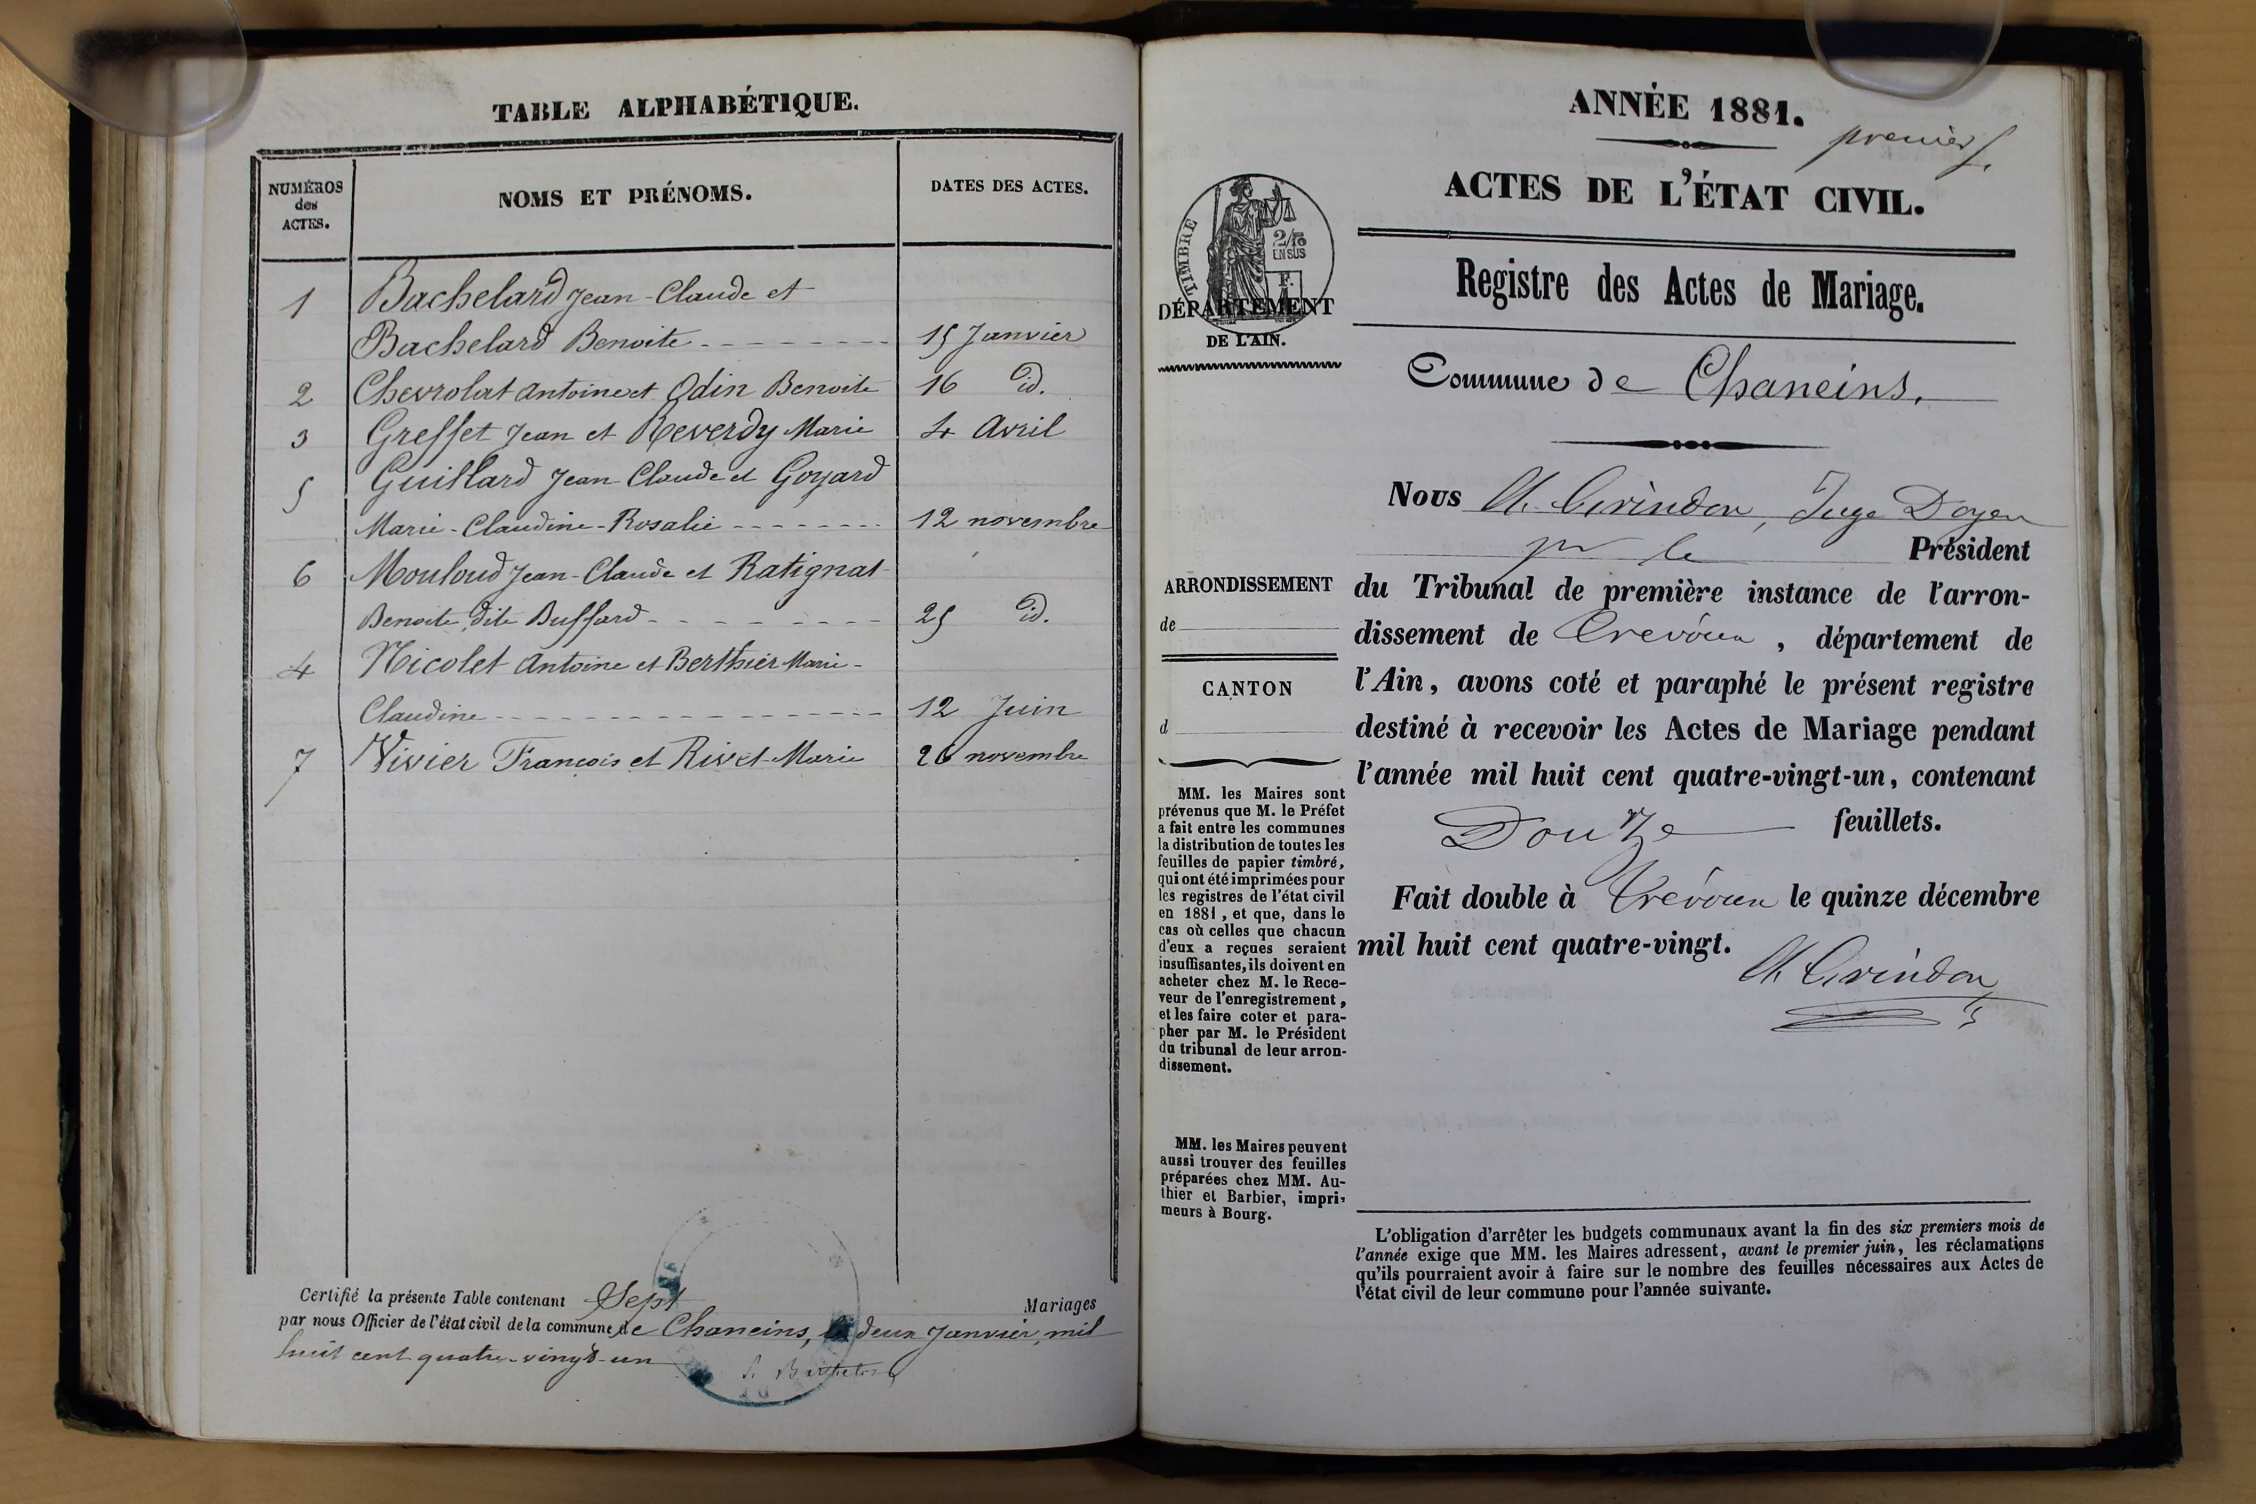 TABLE ALPHABÉTIQUE.
NUMÉROS
des
ACTES.
NOMS ET PRÉNOMS.
DATES DES ACTES.
1 Bachelard Jean-Claude et
Bachelard Benoite 15 Janvier
2 Chevrolat Antoine et Odin Benoite 16 id.
3 Greffet Jean et Reverdy Marie 4 Avril
5 Guillard Jean Claude et Goyard
Marie-Claudine-Rosalie 12 novembre
6 Mouloud Jean-Claude et Ratignat
Benoite dite Buffard 25 id.
4 Nicolet Antoine et Berthier Marie-
Claudine 12 Juin
7 Vivier François et Rivet Marie 26 novembre
Certifié la présente Table contenant Sept Mariages
par nous Officier de l'état civil de la commune de Chaneins, le deux Janvier, mil
huit cent quatre-vingt-un
ANNÉE 1881.
premier
ACTES DE L'ÉTAT CIVIL.
TIMBRE
2/10
EN SUS
F.
DÉPARTEMENT
DE L'AIN.
Registre des Actes de Mariage.
Commune de Chaneins.
Nous Ch. Grindon, Juge Doyen
pr le Président
du Tribunal de première instance de l'arron-
dissement de Trévoux, département de
l'Ain, avons coté et paraphé le présent registre
destiné à recevoir les Actes de Mariage pendant
l'année mil huit cent quatre-vingt-un, contenant
Douze feuillets.
Fait double à Trévoux le quinze décembre
mil huit cent quatre-vingt.
Ch Grindon
ARRONDISSEMENT
de
CANTON
d
MM. les Maires sont
prévenus que M. le Préfet
a fait entre les communes
la distribution de toutes les
feuilles de papier timbré,
qui ont été imprimées pour
les registres de l'état civil
en 1881, et que, dans le
cas où celles que chacun
d'eux a reçues seraient
insuffisantes, ils doivent en
acheter chez M. le Rece-
veur de l'enregistrement,
et les faire coter et para-
pher par M. le Président
du tribunal de leur arron-
dissement.
MM. les Maires peuvent
aussi trouver des feuilles
préparées chez MM. Au-
thier et Barbier, impri-
meurs à Bourg.
L'obligation d'arrêter les budgets communaux avant la fin des six premiers mois de
l'année exige que MM. les Maires adressent, avant le premier juin, les réclamations
qu'ils pourraient avoir à faire sur le nombre des feuilles nécessaires aux Actes de
l'état civil de leur commune pour l'année suivante.